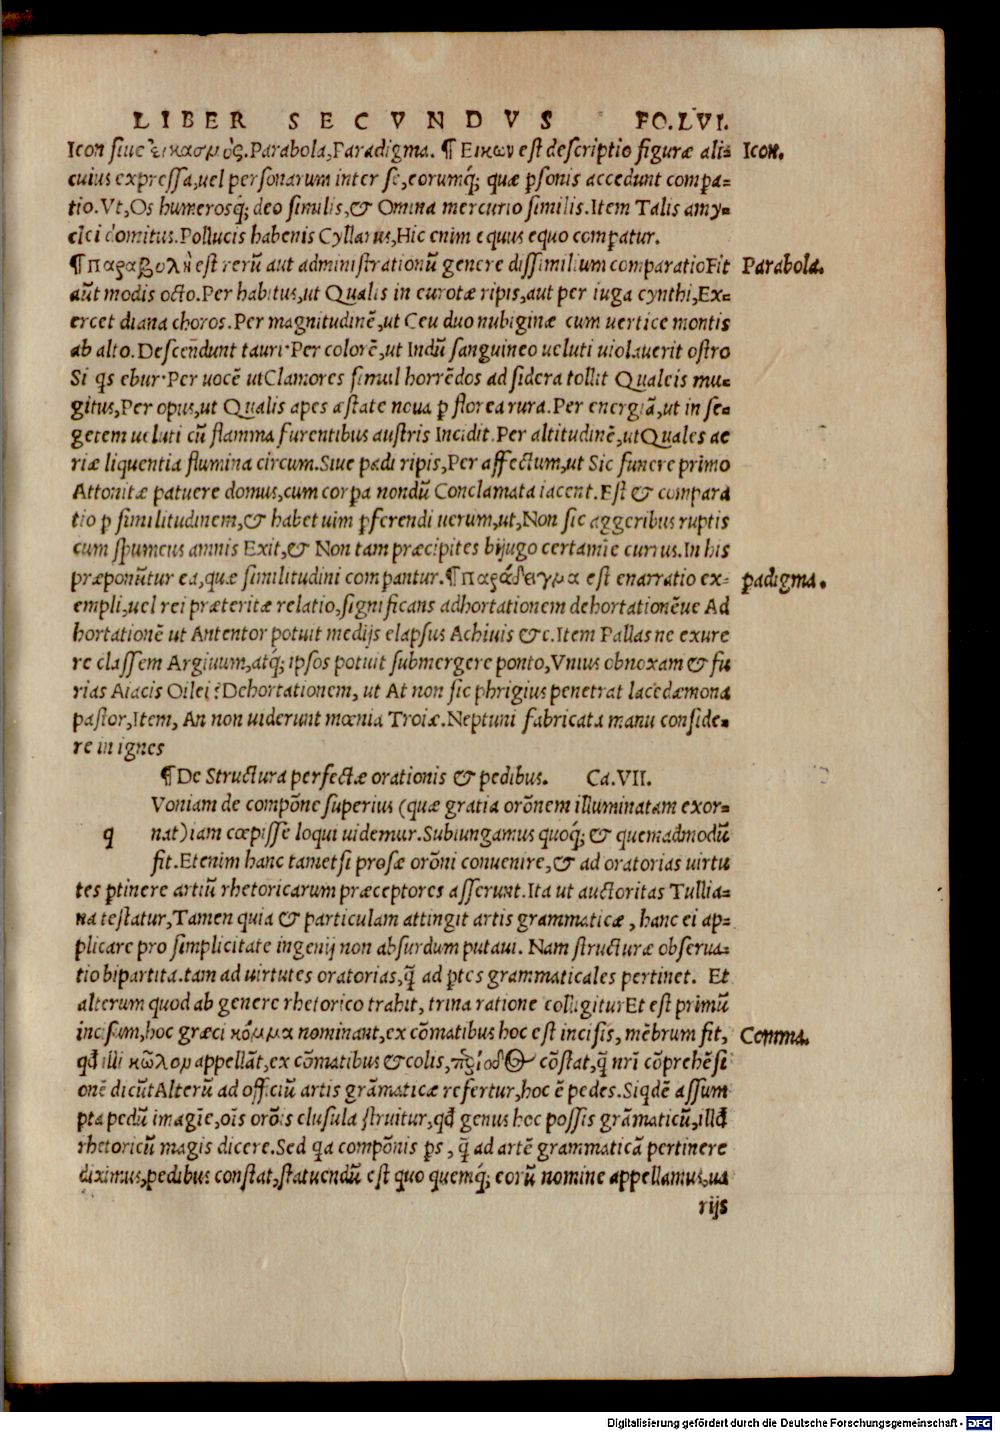 LIBER SECVNDVS FO.LVI.
Icon siue εἰκασμὸς.Parabola,Paradigma. ¶ Εικων est descriptio figuræ ali= Icon.
cuius expressa,uel personarum inter se,eorumq́; quæ ꝑsonis accedunt compa=
tio.Vt,Os humerosq́; deo similis,& Omina mercurio similis.Item Talis amy=
clei domitus.Pollucis habenis Cyllarus,Hic enim equus equo compatur.
¶παραβολὴ est rerū aut administrationū genere dissimilium comparatioFit Parabola.
aūt modis octo.Per habitus,ut Qualis in eurotæ ripis,aut per iuga cynthi,Ex=
ercet diana choros.Per magnitudinē,ut Ceu duo nubiginæ cum uertice montis
ab alto.Descēndunt tauri·Per colorē,ut Indū sanguineo ueluti uiolauerit ostro
Si qs ebur·Per uocē utClamores simul horrēdos ad sidera tollit Qualeis mu=
gitus,Per opus,ut Qualis apes æstate noua ꝑ florea rura.Per energiā,ut in se=
getem ueluti cū flamma furentibus austris Incidit.Per altitudinē,utQuales ae
riæ liquentia flumina circum.Siue padi ripis,Per affectum,ut Sic funere primo
Attonitæ patuere domus,cum corꝑa nondū Conclamata iacent.Est & compara
tio ꝑ similitudinem,& habet uim ꝑferendi uerum,ut,Non sic aggeribus ruptis
cum spumeus amnis Exit,& Non tam præcipites bijugo certamīe currus.In his
præponūtur ea,quæ similitudini compantur.¶παράδειγμα est enarratio ex= ꝑadigma.
empli,uel rei præteritæ relatio,significans adhortationem dehortationēue Ad
hortationē ut Antentor potuit medijs elapsus Achiuis &c.Item Pallas ne exure
re classem Argiuum,atq́; ipsos potuit submergere ponto,Vnius obnoxam & fu
rias Aiacis Oilei?Dehortationem, ut At non sic phrigius penetrat lacedæmona
pastor,Item, An non uiderunt mœnia Troiæ.Neptuni fabricata manu conside=
re in ignes
¶De Structura perfectæ orationis & pedibus. Ca.VII.
Voniam de compōne superius (quæ gratia orōnem illuminatam exor=
q nat)iam cœpisse loqui uidemur.Subiungamus quoq́; & quemadmodū
fit.Etenim hanc tametsi prosæ orōni conuenire,& ad oratorias uirtu
tes ꝑtinere artiū rhetoricarum præceptores asserunt.Ita ut auctoritas Tullia=
na testatur,Tamen quia & particulam attingit artis grammaticæ , hanc ei ap=
plicare pro simplicitate ingenij non absurdum putaui. Nam structuræ obserua=
tio bipartita.tam ad uirtutes oratorias,q̃ ad ꝑtes grammaticales pertinet. Et
alterum quod ab genere rhetorico trahit, trina ratione colligiturEt est primū
incisum,hoc græci κόμμα nominant,ex cōmatibus hoc est incisis, mēbrum fit, Comma.
qđ illi κῶλον appellāt,ex cōmatibus & colis, cōstat,q̃ nrī cōprehēsi
onē dicūtAlterū ad officiū artis grāmaticæ refertur,hoc ē pedes.Siqdē assum
pta pedū imagīe,oīs orōis clusula struitur,qđ genus hoc possis grāmaticū,illđ
rhetoricū magis dicere.Sed qa compōnis ps , q̃ ad artē grammaticā pertinere
diximus,pedibus constat,statuendū est quo quemq́; eorū nomine appellamus,ua
rijs
Digitalisierung gefördert durch die Deutsche Forschungsgemeinschaft - DFG